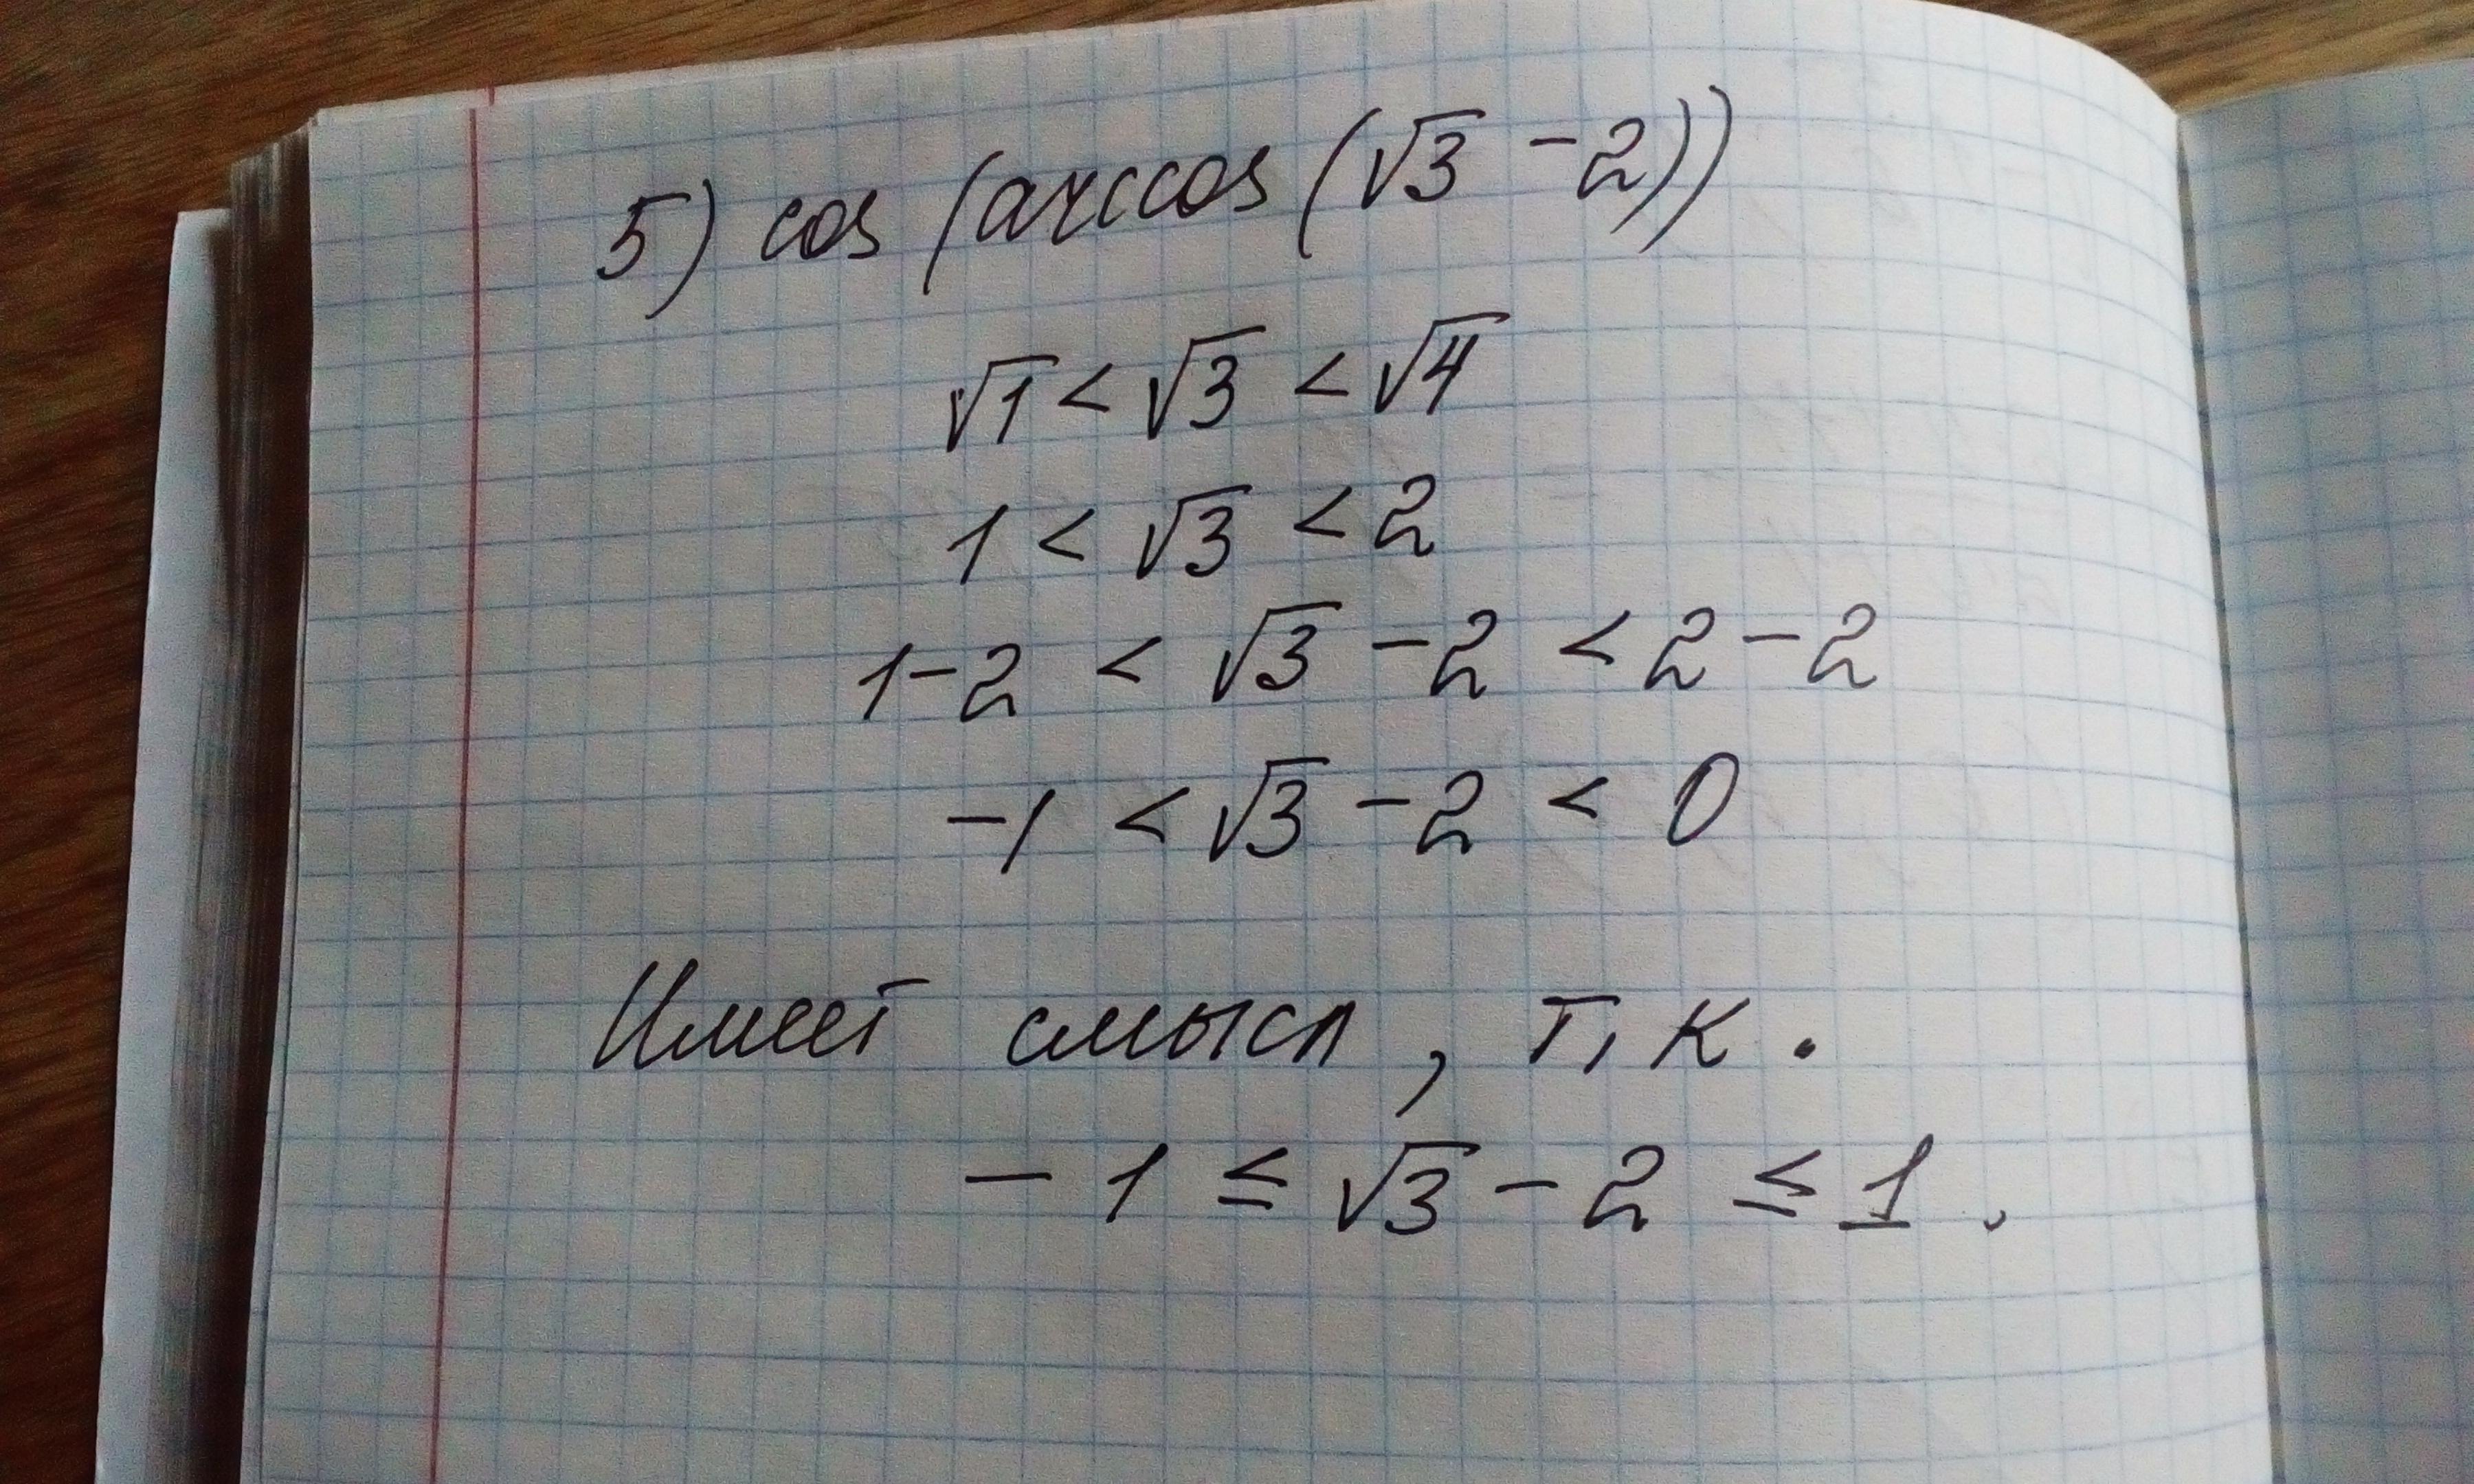 5) cos (arccos (√3 - 2))
√1 < √3 < √4
1 < √3 < 2
1 - 2 < √3 - 2 < 2 - 2
-1 < √3 - 2 < 0
Имеет смысл, т, к.
- 1 ≤ √3 - 2 ≤ 1.